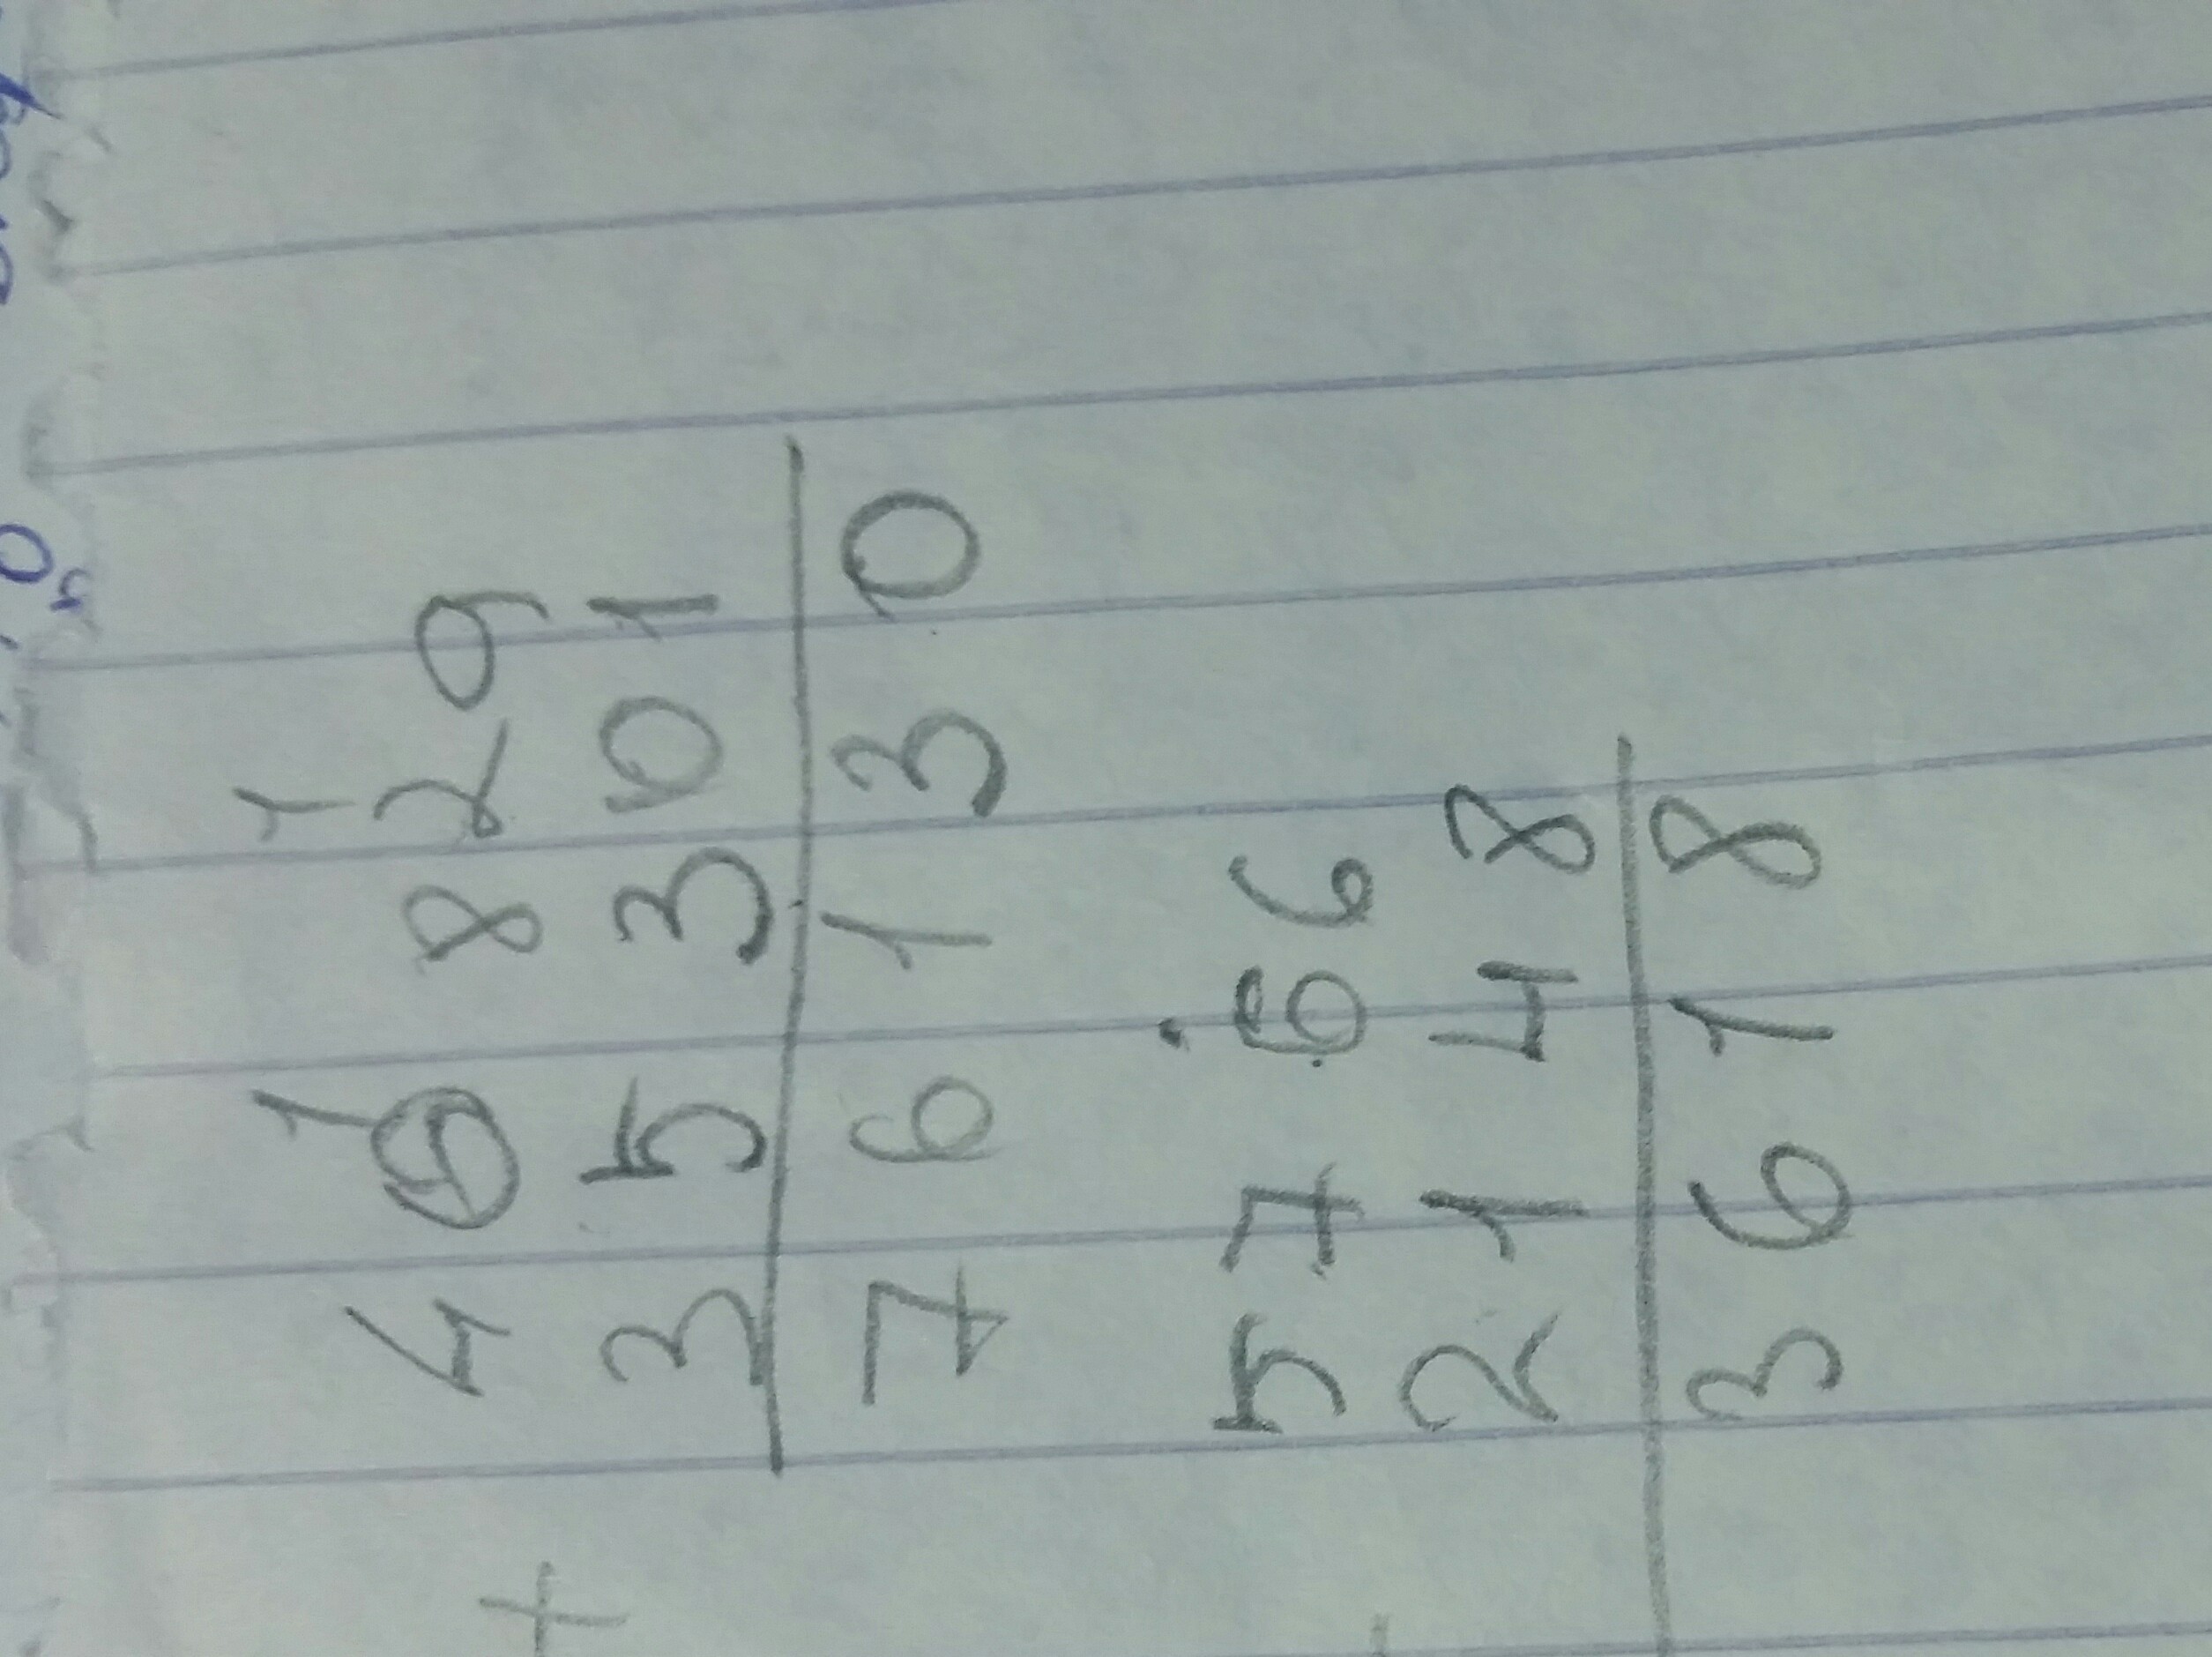 1 1
4 0 8 2 9
+ 3 5 3 0 1
7 6 1 3 0
5 7 6 6
- 2 1 4 8
3 6 1 8